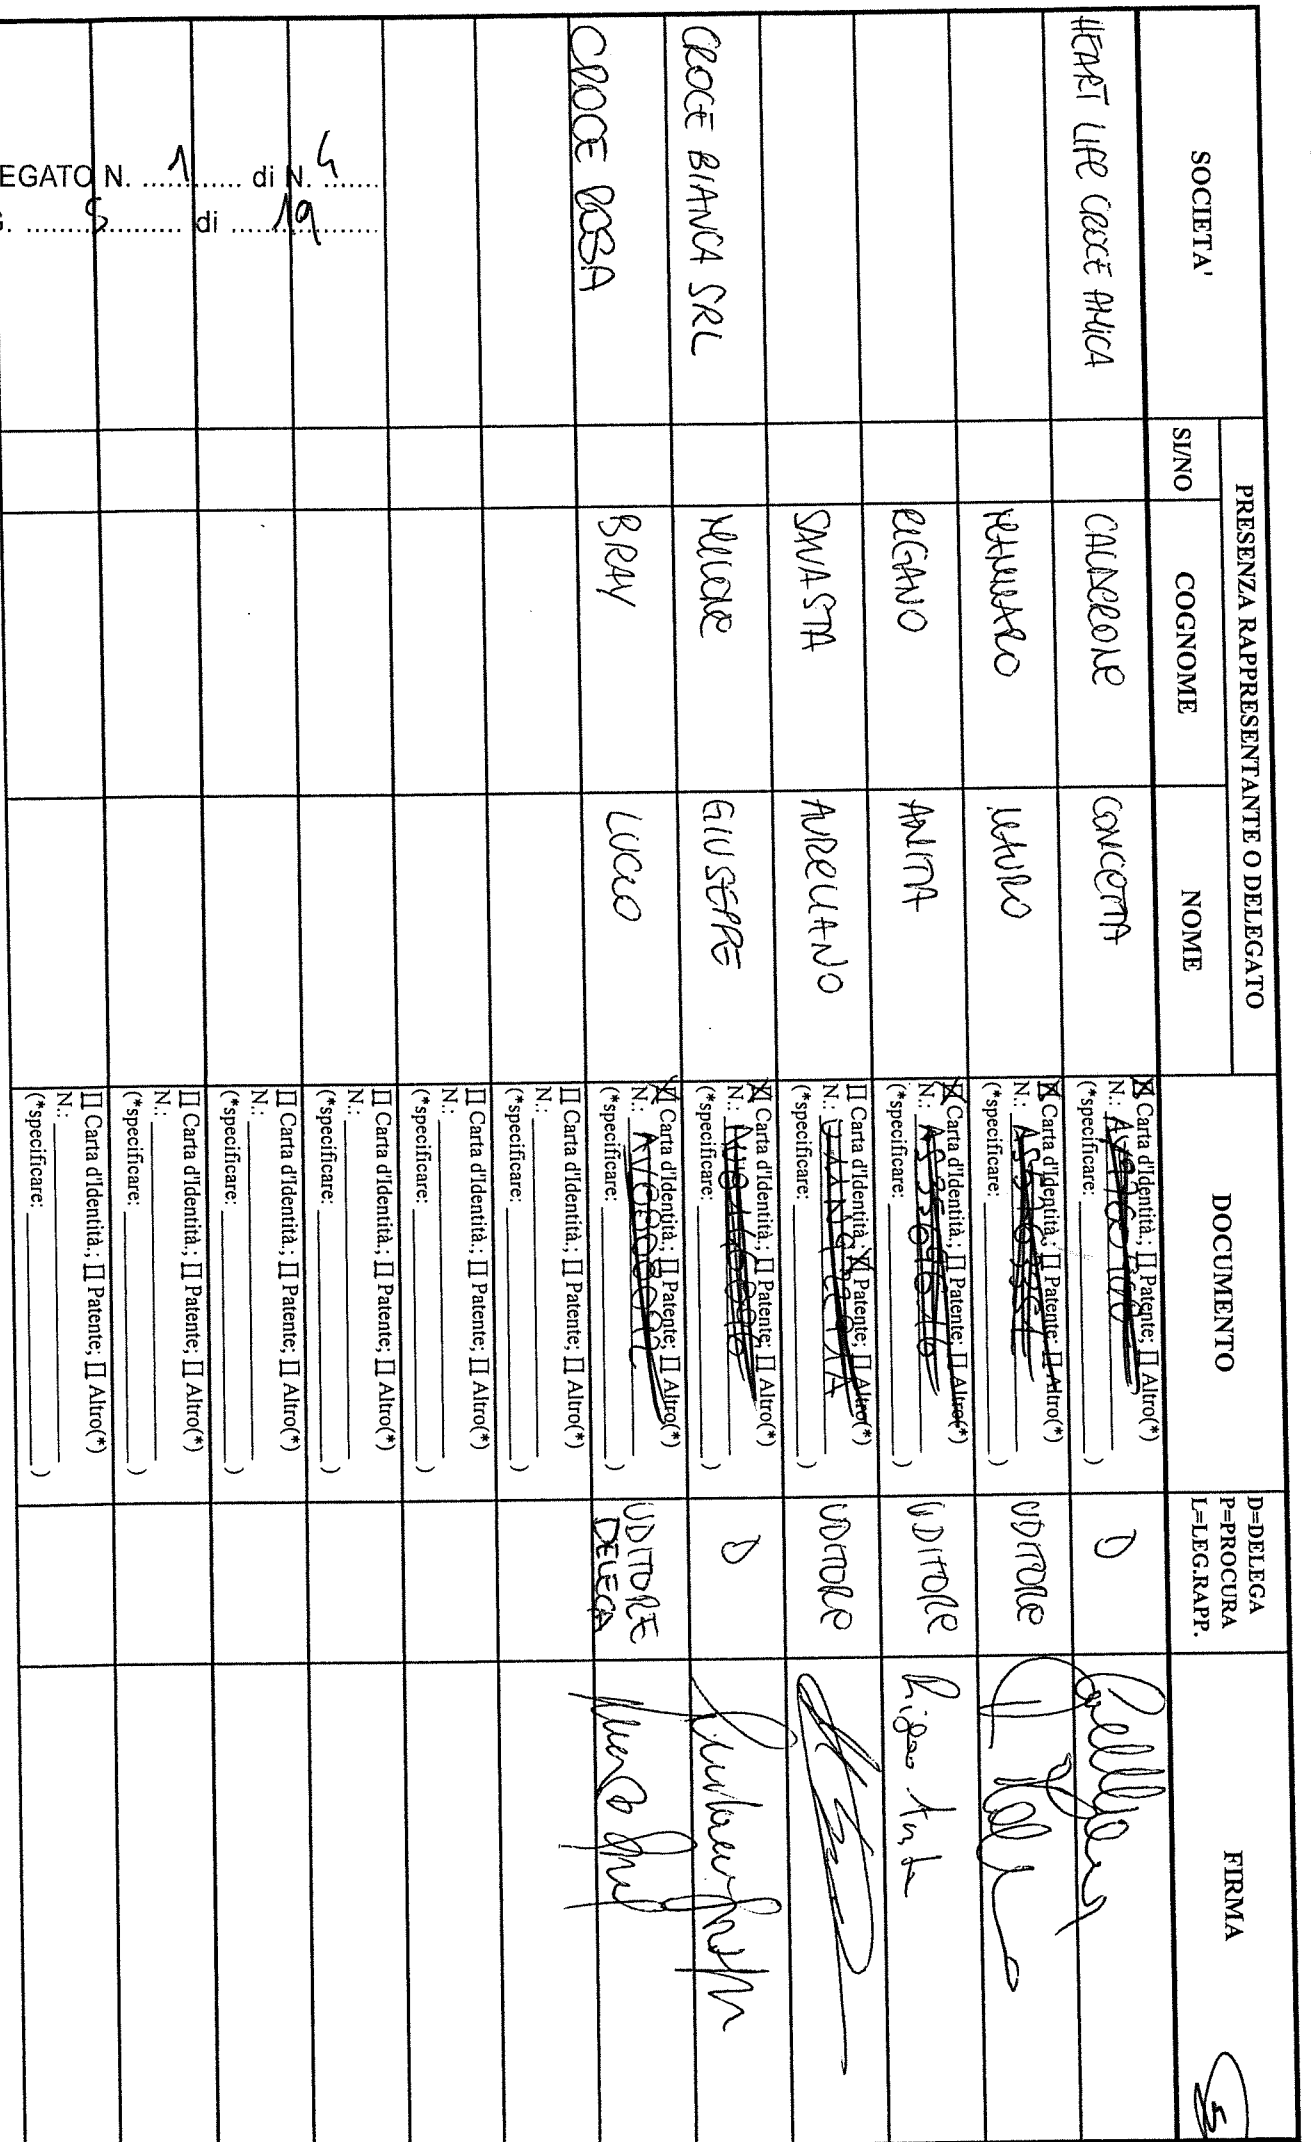 SOCIETA'
PRESENZA RAPPRESENTANTE O DELEGATO
SI/NO
COGNOME
NOME
DOCUMENTO
D=DELEGA
P=PROCURA
L=LEG.RAPP.
FIRMA
5
HEART LIFE CROCE AMICA
CALDERONE
CONCETTA
Carta d'Identità.; Patente; Altro(*)
N.:
(*specificare: )
D
MAURO
Carta d'Identità.; Patente; Altro(*)
N.:
(*specificare: )
UDITORE
RIGANO
ANITA
Carta d'Identità.; Patente; Altro(*)
N.:
(*specificare: )
UDITORE
SAVASTA
AURELIANO
Carta d'Identità.; Patente; Altro(*)
N.:
(*specificare: )
UDITORE
CROCE BIANCA SRL
GIUSEPPE
Carta d'Identità.; Patente; Altro(*)
N.:
(*specificare: )
D
CROCE ROSA
BRAY
LUCIO
Carta d'Identità.; Patente; Altro(*)
N.:
(*specificare: )
UDITORE
DELEGA
Carta d'Identità.; Patente; Altro(*)
N.:
(*specificare: )
Carta d'Identità.; Patente; Altro(*)
N.:
(*specificare: )
Carta d'Identità.; Patente; Altro(*)
N.:
(*specificare: )
Carta d'Identità.; Patente; Altro(*)
N.:
(*specificare: )
Carta d'Identità.; Patente; Altro(*)
N.:
(*specificare: )
Carta d'Identità.; Patente; Altro(*)
N.:
(*specificare: )
EGATO N. 1 di N. 4
G. 5 di 19